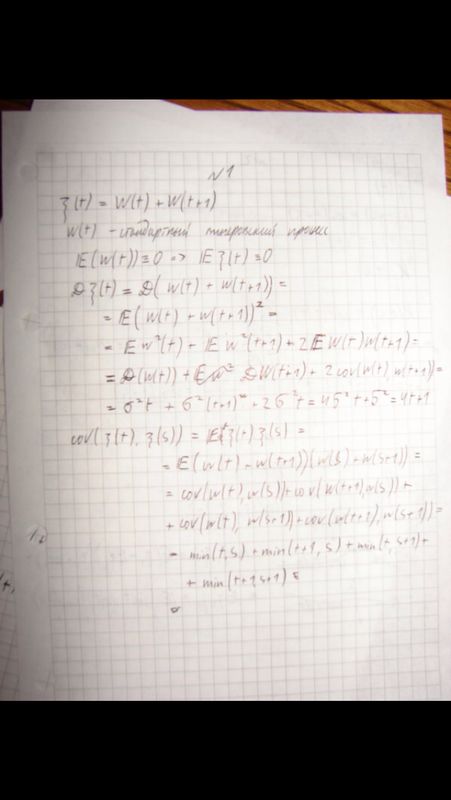 N1
ξ(t) = W(t) + W(t+1)
W(t) - стандартный винеровский процесс
𝔼(W(t)) ≡ 0 => 𝔼ξ(t) ≡ 0
𝔻ξ(t) = 𝔻(W(t) + W(t+1)) =
= 𝔼(W(t) + W(t+1))² =
= 𝔼W²(t) + 𝔼W²(t+1) + 2𝔼W(t)W(t+1) =
= 𝔻(W(t)) + 𝔻W(t+1) + 2cov(W(t), W(t+1)) =
= σ²t + σ²(t+1) + 2σ²t = 4σ²t + σ² = 4t+1
cov(ξ(t), ξ(s)) = 𝔼ξ(t)ξ(s) =
= 𝔼(W(t) + W(t+1))(W(s) + W(s+1)) =
= cov(W(t), W(s)) + cov(W(t+1), W(s)) +
+ cov(W(t), W(s+1)) + cov(W(t+1), W(s+1)) =
= min(t, s) + min(t+1, s) + min(t, s+1) +
+ min(t+1, s+1) =
=